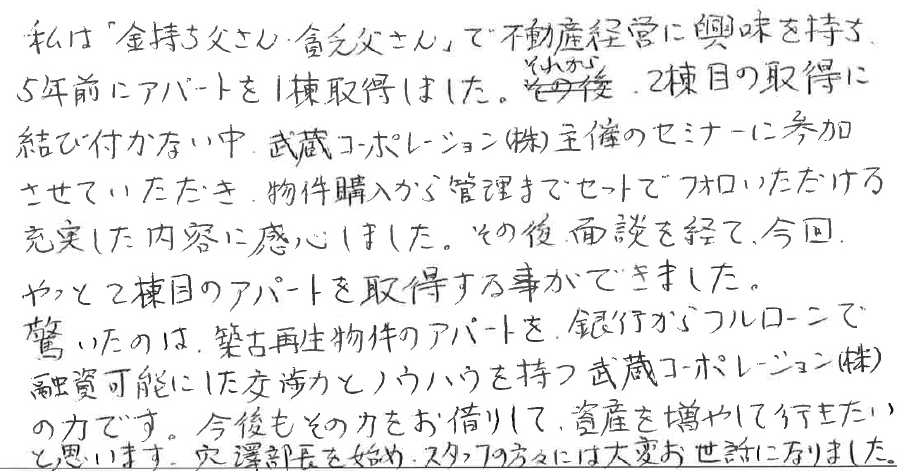 私は「金持ち父さん・貧乏父さん」で不動産経営に興味を持ち、
5年前にアパートを1棟取得しました。それから、2棟目の取得に
結び付かない中、武蔵コーポレーション(株)主催のセミナーに参加
させていただき、物件購入から管理までセットでフォロいただける
充実した内容に感心しました。その後、面談を経て、今回、
やっと2棟目のアパートを取得する事ができました。
驚いたのは、築古再生物件のアパートを、銀行からフルローンで
融資可能にした交渉力とノウハウを持つ武蔵コーポレーション(株)
の力です。今後もその力をお借りして、資産を増やして行きたい
と思います。穴澤部長を始め、スタッフの方々には大変お世話になりました。